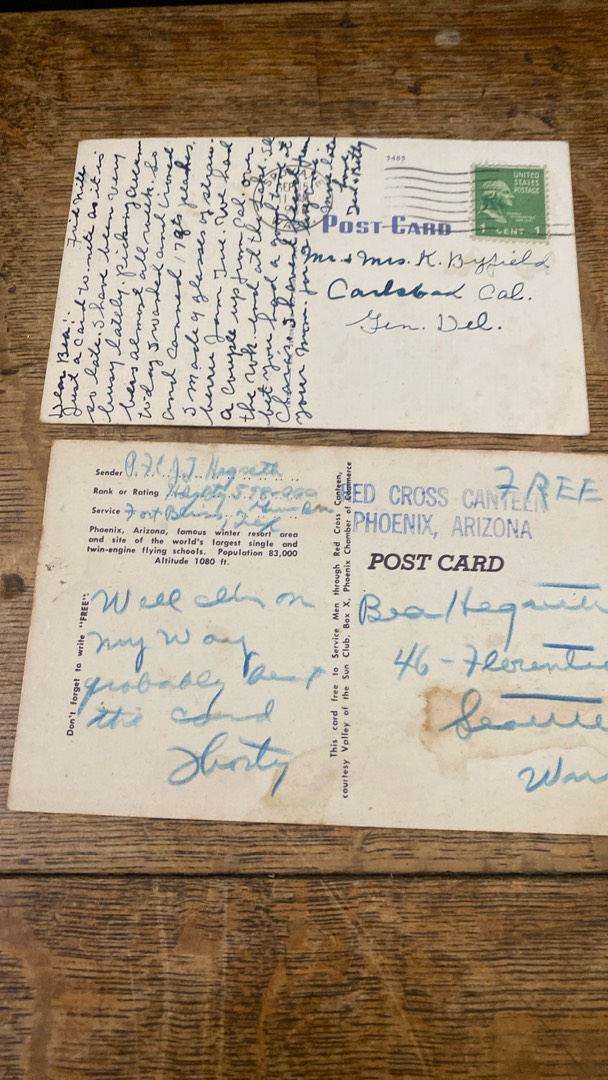 5485
UNITED
STATES
POSTAGE
1 CENT 1
POST CARD
Mr. & Mrs. K. Byfield
Carlsbad Cal.
Gen. Del.
Dear Bea:
Just a card to write as it is
so late. I have been very
busy lately. Picking
beans almost all week. So
today I washed and ironed
and canned 17 qts peaches.
I made 4 glasses of
berry jam Tue. We had
a couple up from Cal. over
the wk. end
but you had a good time at
your Mom. for a
Love
Sender P.F.C. J.T. Hegseth
Rank or Rating
Service Fort Bliss, Tex
Phoenix, Arizona, famous winter resort area
and site of the world's largest single and
twin-engine flying schools. Population 83,000
Altitude 1080 ft.
Don't forget to write "FREE"
Well I'm on
my way
probably beat
the card
Shorty
This card free to Service Men through Red Cross Canteen,
courtesy Valley of the Sun Club, Box X, Phoenix Chamber of Commerce
FREE
RED CROSS CANTEEN
PHOENIX, ARIZONA
POST CARD
Bea Hegseth
46 - Florentia
Seattle
Wash